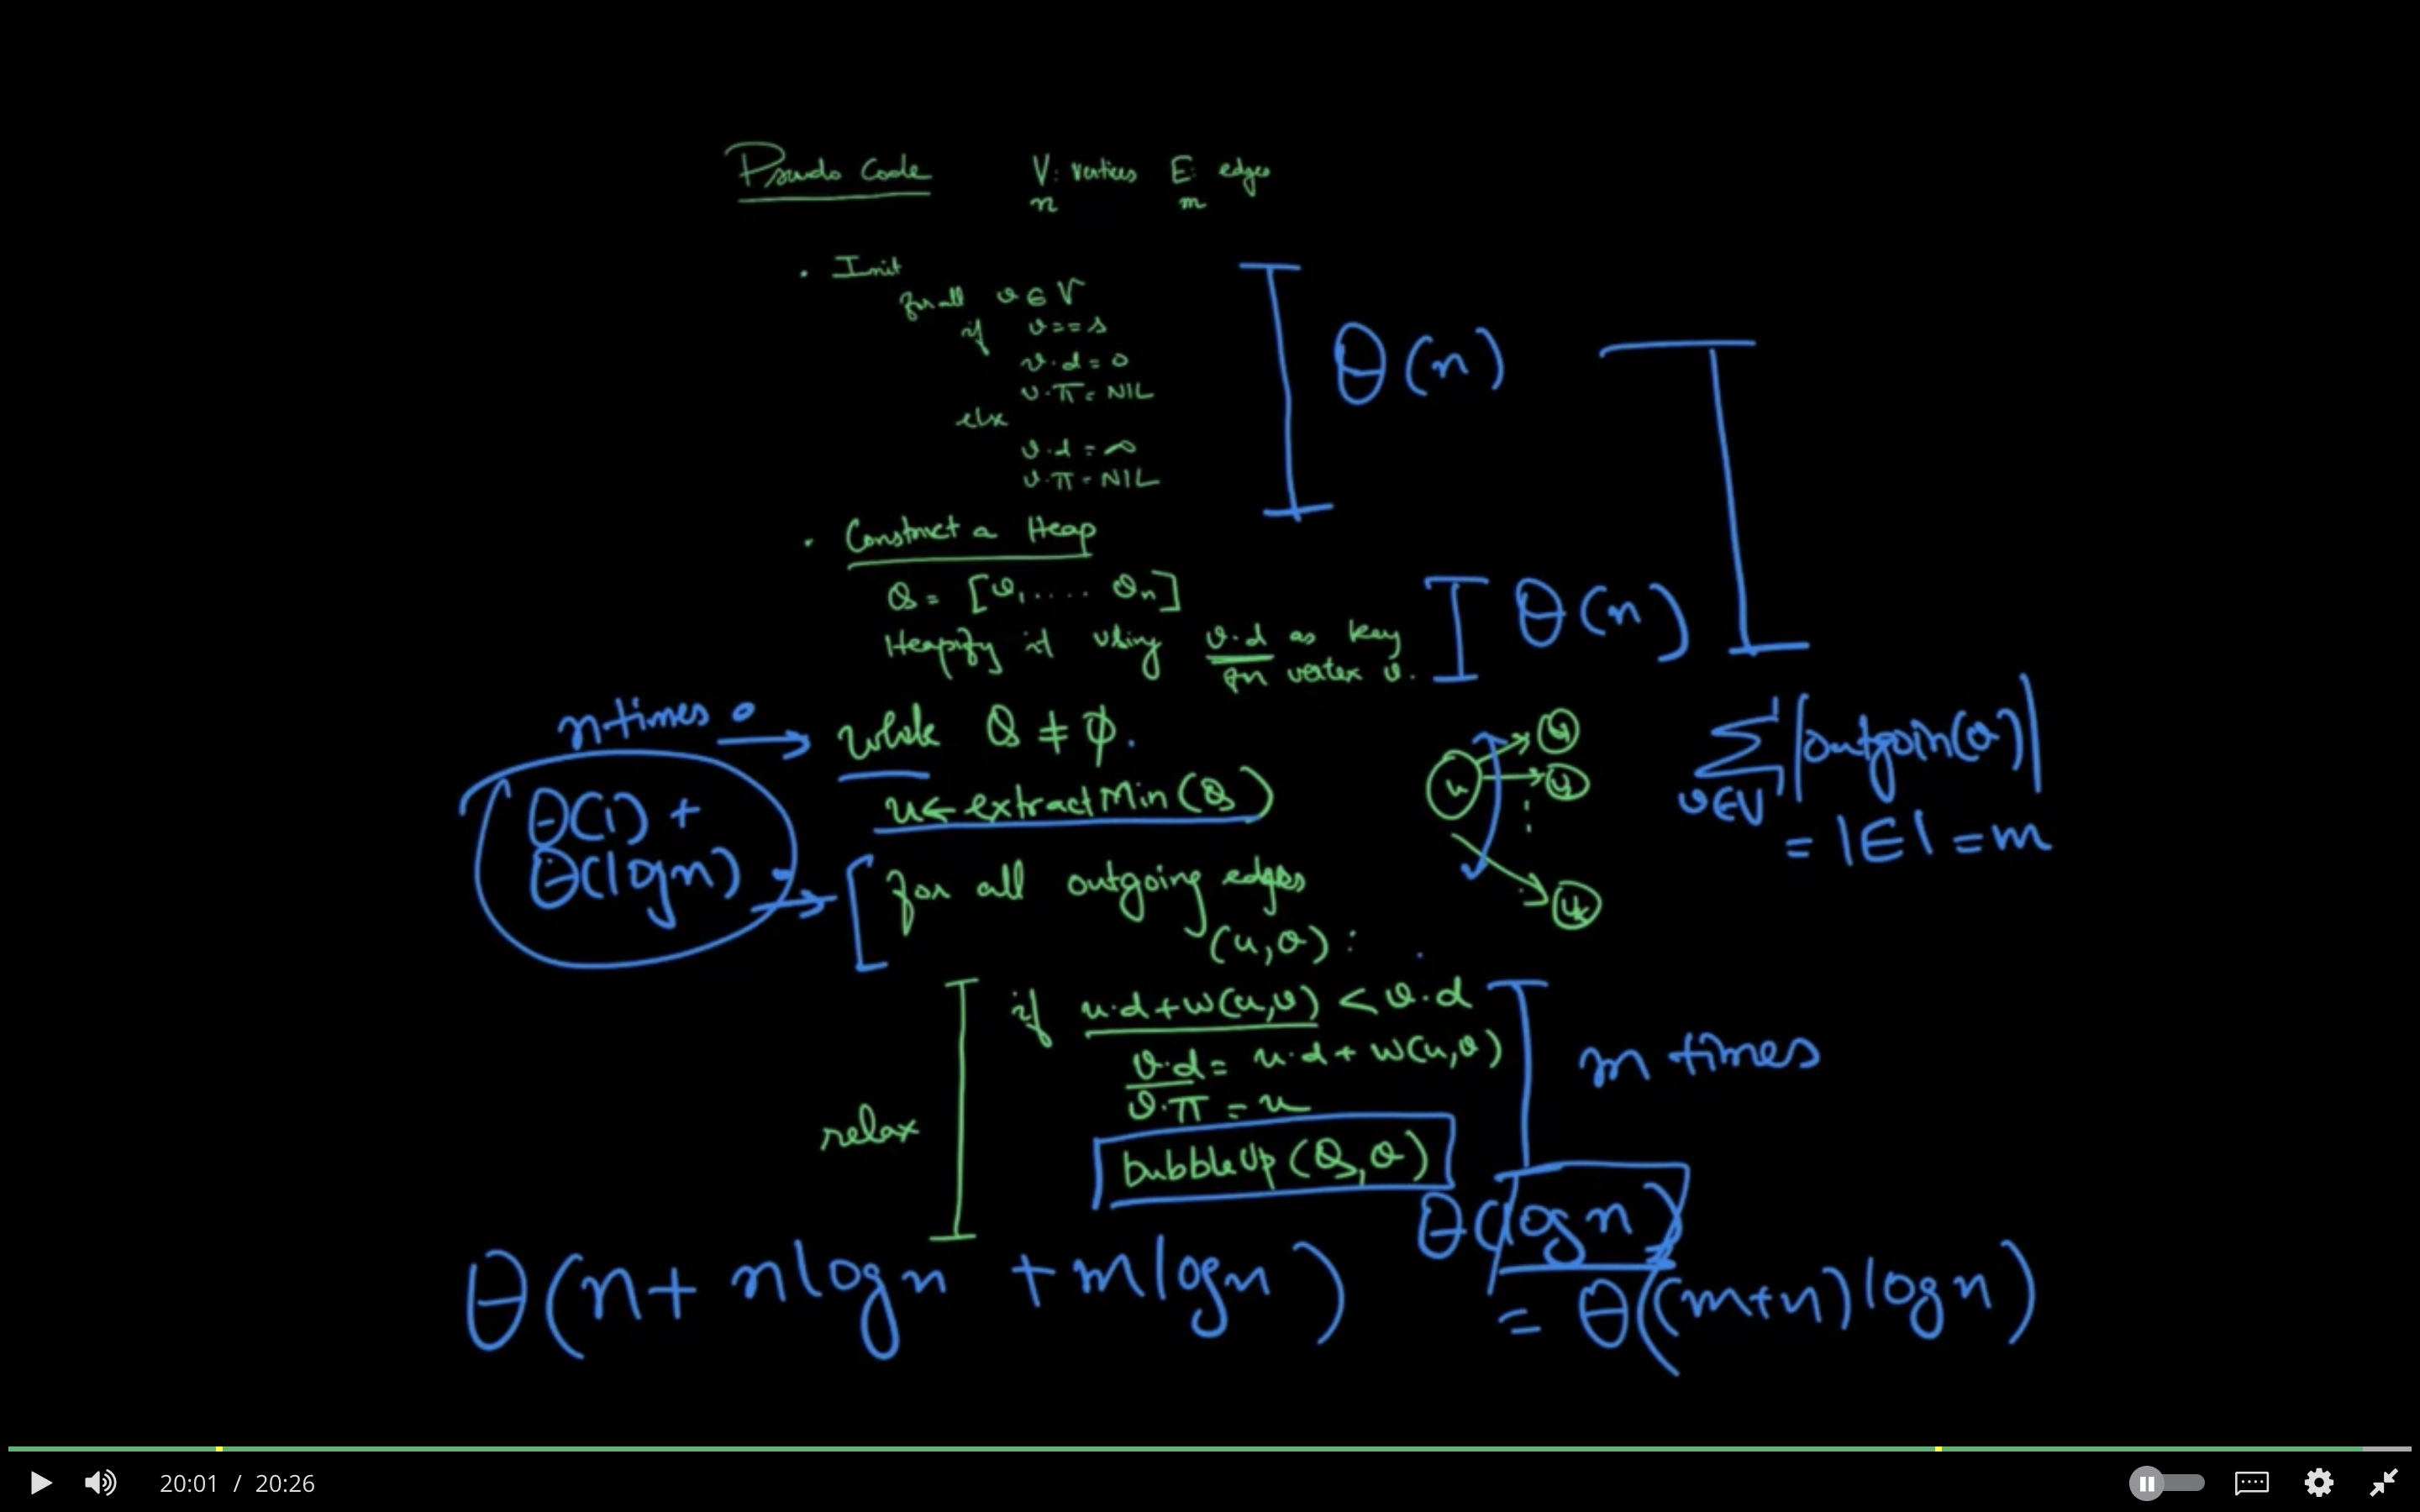 Pseudo Code V: vertices E: edges
n m
• Init
for all v ∈ V
if v == s
v.d = 0
v.π = NIL
else
v.d = ∞
v.π = NIL
Θ(n)
• Construct a Heap
Q = [v₁, .... vₙ]
Heapify it using v.d as key
for vertex v.
Θ(n)
n times →
while Q ≠ φ.
u ← extractMin(Q)
Θ(1) +
Θ(log n) →
for all outgoing edges
(u,v):
u
v₁
v₂
vₖ
∑ |outgoin(v)|
v∈V
= |E| = m
relax
if u.d + w(u,v) < v.d
v.d = u.d + w(u,v)
v.π = u
bubbleUp(Q,v)
m times
Θ(log n)
Θ(n + n log n + m log n) = Θ((m+n) log n)
20:01 / 20:26